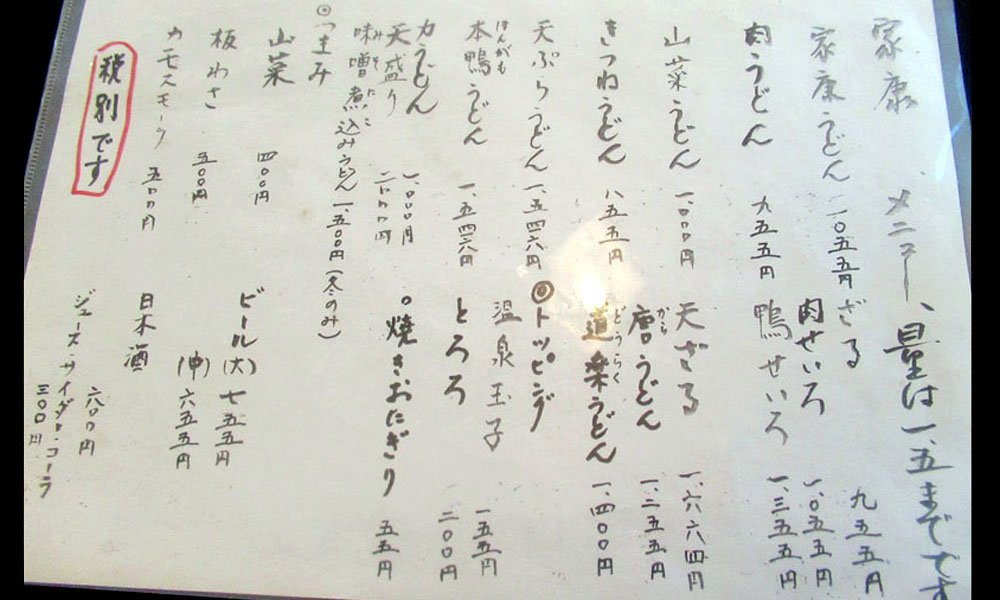 家康 メニュー、量は一、五までです
家康うどん 一、〇五五円
ざる 九五五円
肉うどん 九五五円
肉せいろ 一、〇五五円
鴨せいろ 一、三五五円
山菜うどん 一、〇〇〇円
天ざる 一、六六四円
きつねうどん 八五五円
唐うどん 一、二五五円
から
道楽うどん 一、四〇〇円
どうらく
天ぷらうどん 一、五四六円
◎トッピング
本鴨うどん 一、五四六円
ほんがも
温泉玉子 一五五円
とろろ 二〇〇円
力うどん 一、〇〇〇円
天盛り 二、〇〇〇円
。焼きおにぎり 五五円
味噌煮込みうどん 一、五〇〇円(冬のみ)
みそに こ
◎つまみ
山菜 四〇〇円
ビール(大) 七五五円
(中) 六五五円
板わさ 五〇〇円
日本酒 六〇〇円
カモスモーク 五〇〇円
ジュース・サイダー・コーラ 三〇〇円
税別です